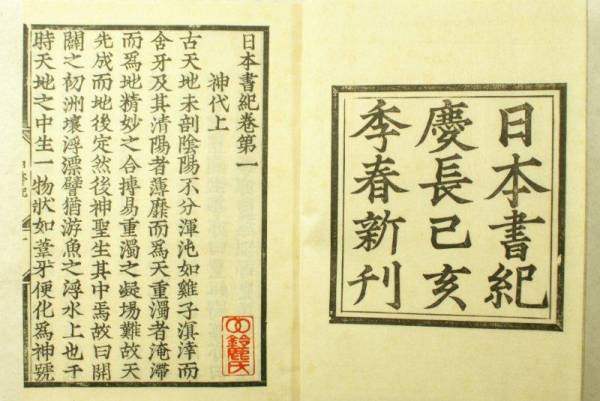 日本書紀
慶長己亥
季春新刊
日本書紀卷第一
神代上
古天地未剖陰陽不分渾沌如雞子溟涬而
含牙及其清陽者薄靡而爲天重濁者淹滯
而爲地精妙之合摶易重濁之凝埸難故天
先成而地後定然後神聖生其中焉故曰開
闢之初洲壤浮漂譬猶游魚之浮水上也于
時天地之中生一物狀如葦牙便化爲神號
鈴鹿氏